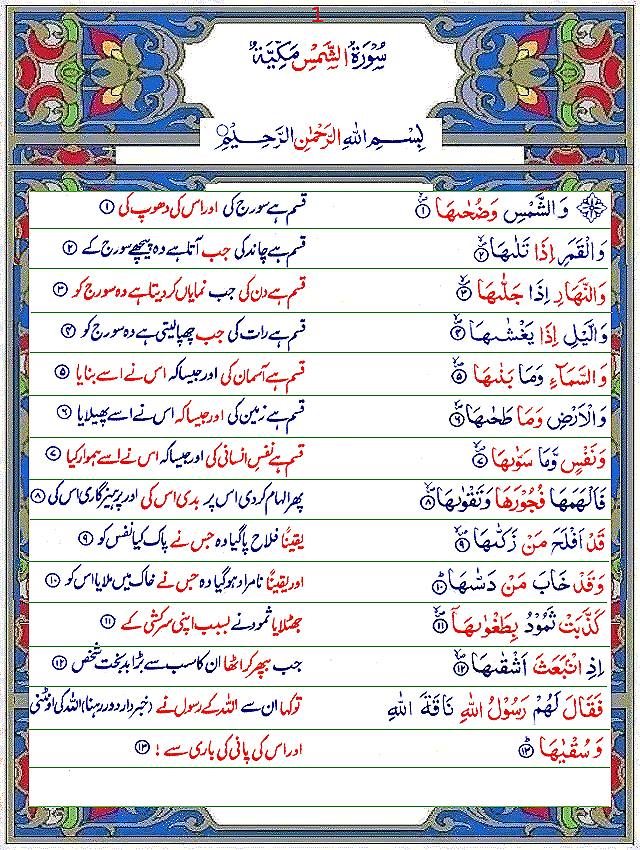 1
سُوْرَةُ الشَّمْسِ مَكِّيَّةٌ
بِسْمِ اللهِ الرَّحْمٰنِ الرَّحِيْمِ
وَالشَّمْسِ وَضُحٰىهَا ۱ قسم ہے سورج کی اور اس کی دھوپ کی ۱
وَالْقَمَرِ اِذَا تَلٰىهَا ۲ قسم ہے چاند کی جب آتا ہے وہ پیچھے سورج کے ۲
وَالنَّهَارِ اِذَا جَلّٰىهَا ۳ قسم ہے دن کی جب نمایاں کر دیتا ہے وہ سورج کو ۳
وَالَّيْلِ اِذَا يَغْشٰىهَا ۴ قسم ہے رات کی جب چھپا لیتی ہے وہ سورج کو ۴
وَالسَّمَآءِ وَمَا بَنٰىهَا ۵ قسم ہے آسمان کی اور جیسا کہ اس نے اسے بنایا ۵
وَالْاَرْضِ وَمَا طَحٰىهَا ۶ قسم ہے زمین کی اور جیسا کہ اس نے اسے پھیلایا ۶
وَنَفْسٍ وَّمَا سَوّٰىهَا ۷ قسم ہے نفسِ انسانی کی اور جیسا کہ اس نے اسے ہموار کیا ۷
فَاَلْهَمَهَا فُجُوْرَهَا وَتَقْوٰىهَا ۸ پھر الہام کر دی اس پر بدی اس کی اور پرہیزگاری اس کی ۸
قَدْ اَفْلَحَ مَنْ زَكّٰىهَا ۹ یقیناً فلاح پا گیا وہ جس نے پاک کیا نفس کو ۹
وَقَدْ خَابَ مَنْ دَسّٰىهَا ۱۰ اور یقیناً نامراد ہو گیا وہ جس نے خاک میں ملایا اس کو ۱۰
كَذَّبَتْ ثَمُوْدُ بِطَغْوٰىهَآ ۱۱ جھٹلایا ثمود نے بسبب اپنی سرکشی کے ۱۱
اِذِ انْۢبَعَثَ اَشْقٰىهَا ۱۲ جب بپھر کر اٹھا ان کا سب سے بڑا بدبخت شخص ۱۲
فَقَالَ لَهُمْ رَسُوْلُ اللهِ نَاقَةَ اللهِ تو کہا ان سے اللہ کے رسول نے (خبردار دور رہنا) اللہ کی اونٹنی
وَسُقْيٰهَا ۱۳ اور اس کی پانی کی باری سے ! ۱۳